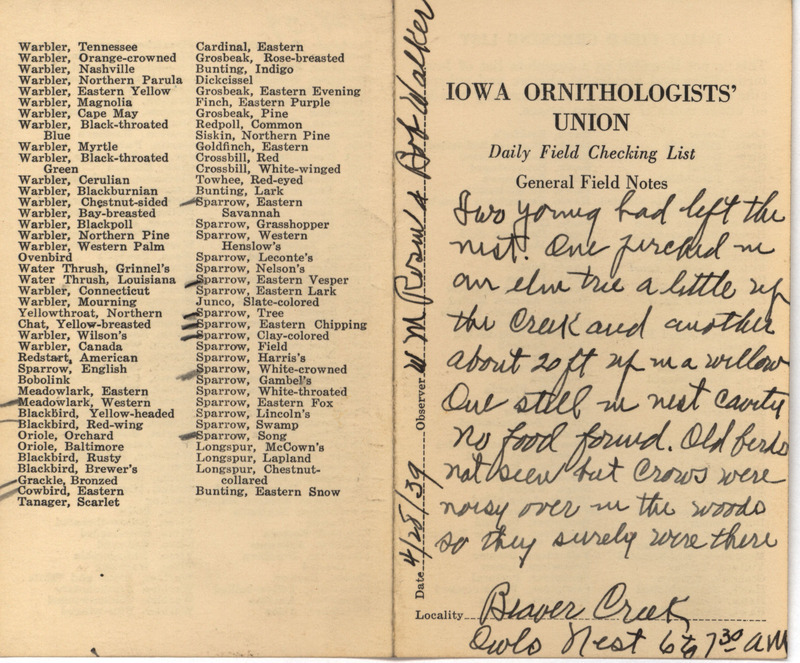 Warbler, Tennessee
Warbler, Orange-crowned
Warbler, Nashville
Warbler, Northern Parula
Warbler, Eastern Yellow
Warbler, Magnolia
Warbler, Cape May
Warbler, Black-throated
Blue
Warbler, Myrtle
Warbler, Black-throated
Green
Warbler, Cerulian
Warbler, Blackburnian
Warbler, Chestnut-sided
Warbler, Bay-breasted
Warbler, Blackpoll
Warbler, Northern Pine
Warbler, Western Palm
Ovenbird
Water Thrush, Grinnel's
Water Thrush, Louisiana
Warbler, Connecticut
Warbler, Mourning
Yellowthroat, Northern
Chat, Yellow-breasted
Warbler, Wilson's
Warbler, Canada
Redstart, American
Sparrow, English
Bobolink
Meadowlark, Eastern
Meadowlark, Western
Blackbird, Yellow-headed
Blackbird, Red-wing
Oriole, Orchard
Oriole, Baltimore
Blackbird, Rusty
Blackbird, Brewer's
Grackle, Bronzed
Cowbird, Eastern
Tanager, Scarlet
Cardinal, Eastern
Grosbeak, Rose-breasted
Bunting, Indigo
Dickcissel
Grosbeak, Eastern Evening
Finch, Eastern Purple
Grosbeak, Pine
Redpoll, Common
Siskin, Northern Pine
Goldfinch, Eastern
Crossbill, Red
Crossbill, White-winged
Towhee, Red-eyed
Bunting, Lark
Sparrow, Eastern
Savannah
Sparrow, Grasshopper
Sparrow, Western
Henslow's
Sparrow, Leconte's
Sparrow, Nelson's
Sparrow, Eastern Vesper
Sparrow, Eastern Lark
Junco, Slate-colored
Sparrow, Tree
Sparrow, Eastern Chipping
Sparrow, Clay-colored
Sparrow, Field
Sparrow, Harris's
Sparrow, White-crowned
Sparrow, Gambel's
Sparrow, White-throated
Sparrow, Eastern Fox
Sparrow, Lincoln's
Sparrow, Swamp
Sparrow, Song
Longspur, McCown's
Longspur, Lapland
Longspur, Chestnut-
collared
Bunting, Eastern Snow
Date 4/28/39 Observer W M Rosen & Bob Walker
IOWA ORNITHOLOGISTS'
UNION
Daily Field Checking List
General Field Notes
Two young had left the
nest. One perched in
an elm tree a little up
the Creek and another
about 20 ft up in a willow
One still in nest cavity
No food found. Old birds
not seen but Crows were
noisy over in the woods
so they surely were there
Locality Beaver Creek
Owls Nest 6 to 7 30 AM